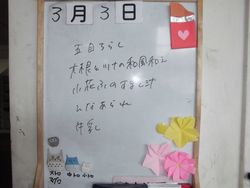 3月3日
五目ちらし
大根とツナの和風和え
小花ふのすまし汁
ひなあられ
牛乳